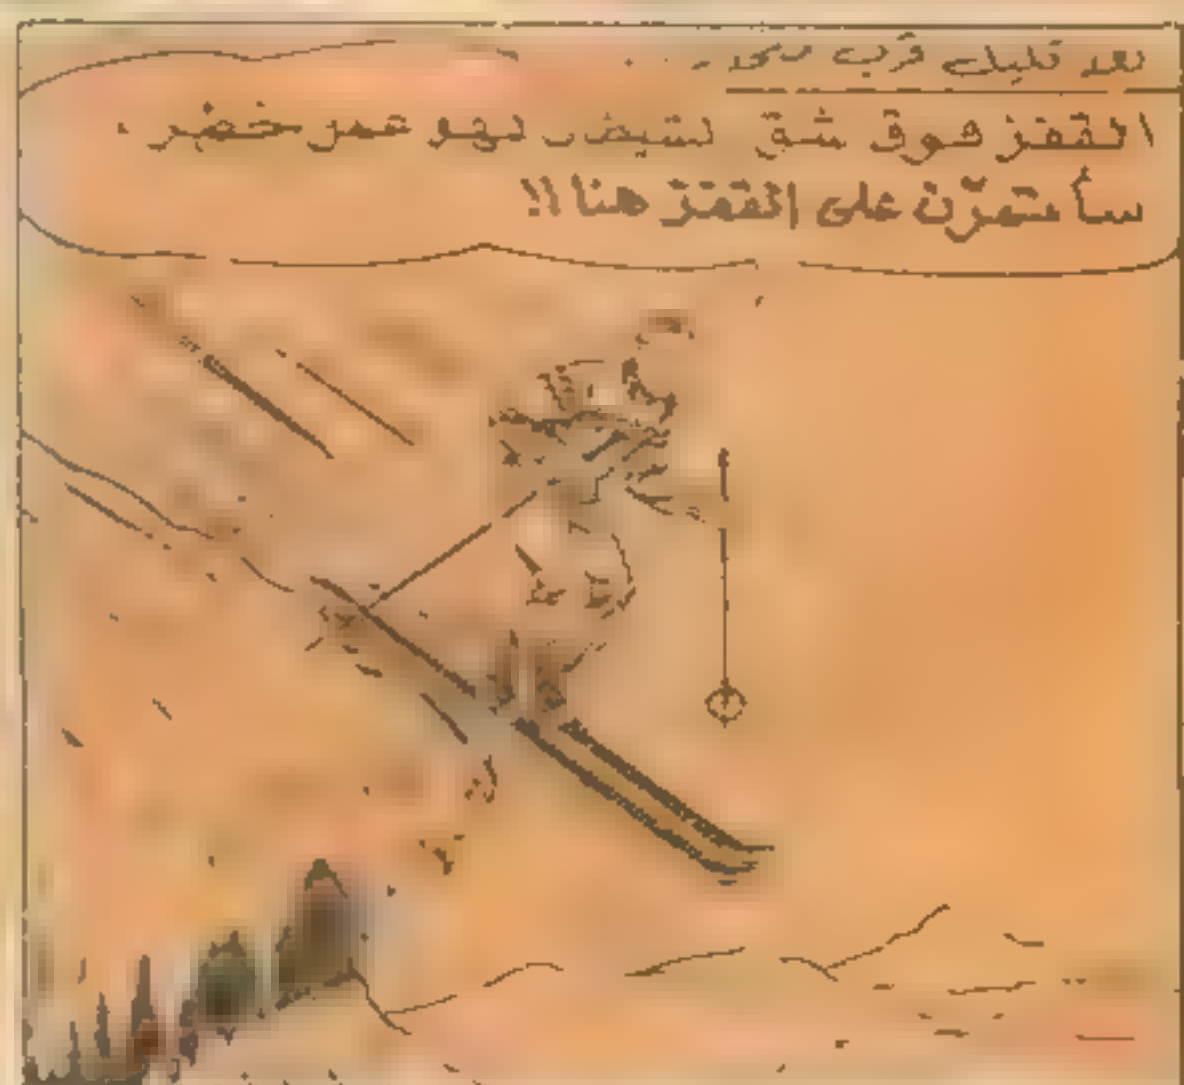 بعد قليل قرب
القفز فوق شق لهو خطر .
سأتمرّن على القفز هنا !!